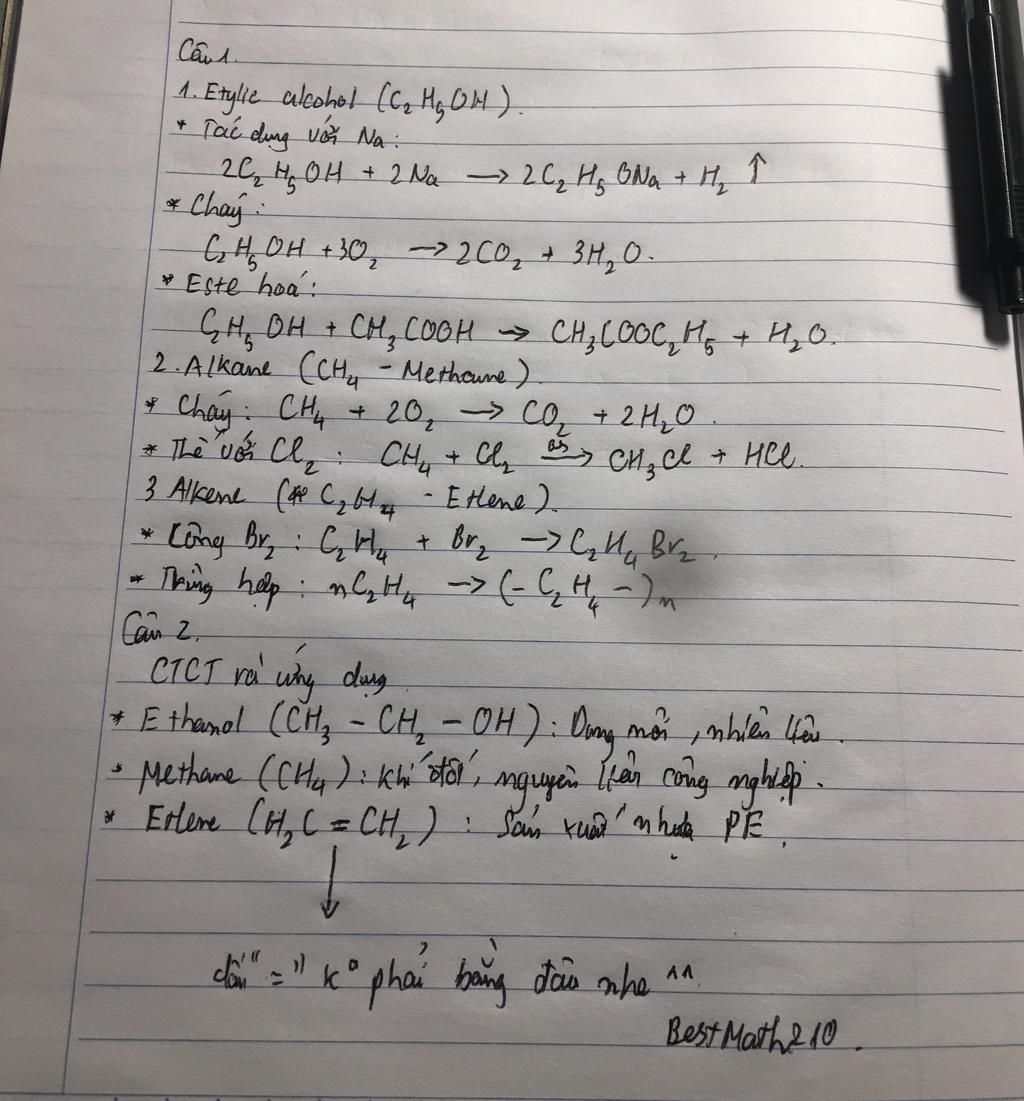 Câu 1.
1. Etylic alcohol (C₂H₅OH).
* Tác dụng với Na:
2C₂H₅OH + 2Na → 2C₂H₅ONa + H₂ ↑
* Cháy:
C₂H₅OH + 3O₂ → 2CO₂ + 3H₂O.
* Este hoá:
C₂H₅OH + CH₃COOH → CH₃COOC₂H₅ + H₂O.
2. Alkane (CH₄ - Methane).
* Cháy: CH₄ + 2O₂ → CO₂ + 2H₂O.
* Thế với Cl₂: CH₄ + Cl₂ as→ CH₃Cl + HCl.
3 Alkene (C₂H₄ - Etlene).
* Cộng Br₂: C₂H₄ + Br₂ → C₂H₄Br₂.
* Trùng hợp: nC₂H₄ → (- C₂H₄ -)n
Câu 2.
CTCT và ứng dụng
* Ethanol (CH₃ - CH₂ - OH): Dung môi, nhiên liệu.
* Methane (CH₄): khí đốt, nguyên liệu công nghiệp.
* Etlene (H₂C = CH₂): Sản xuất nhựa PE.
dấu "=" k° phải bằng đâu nhe ^^
BestMath210.